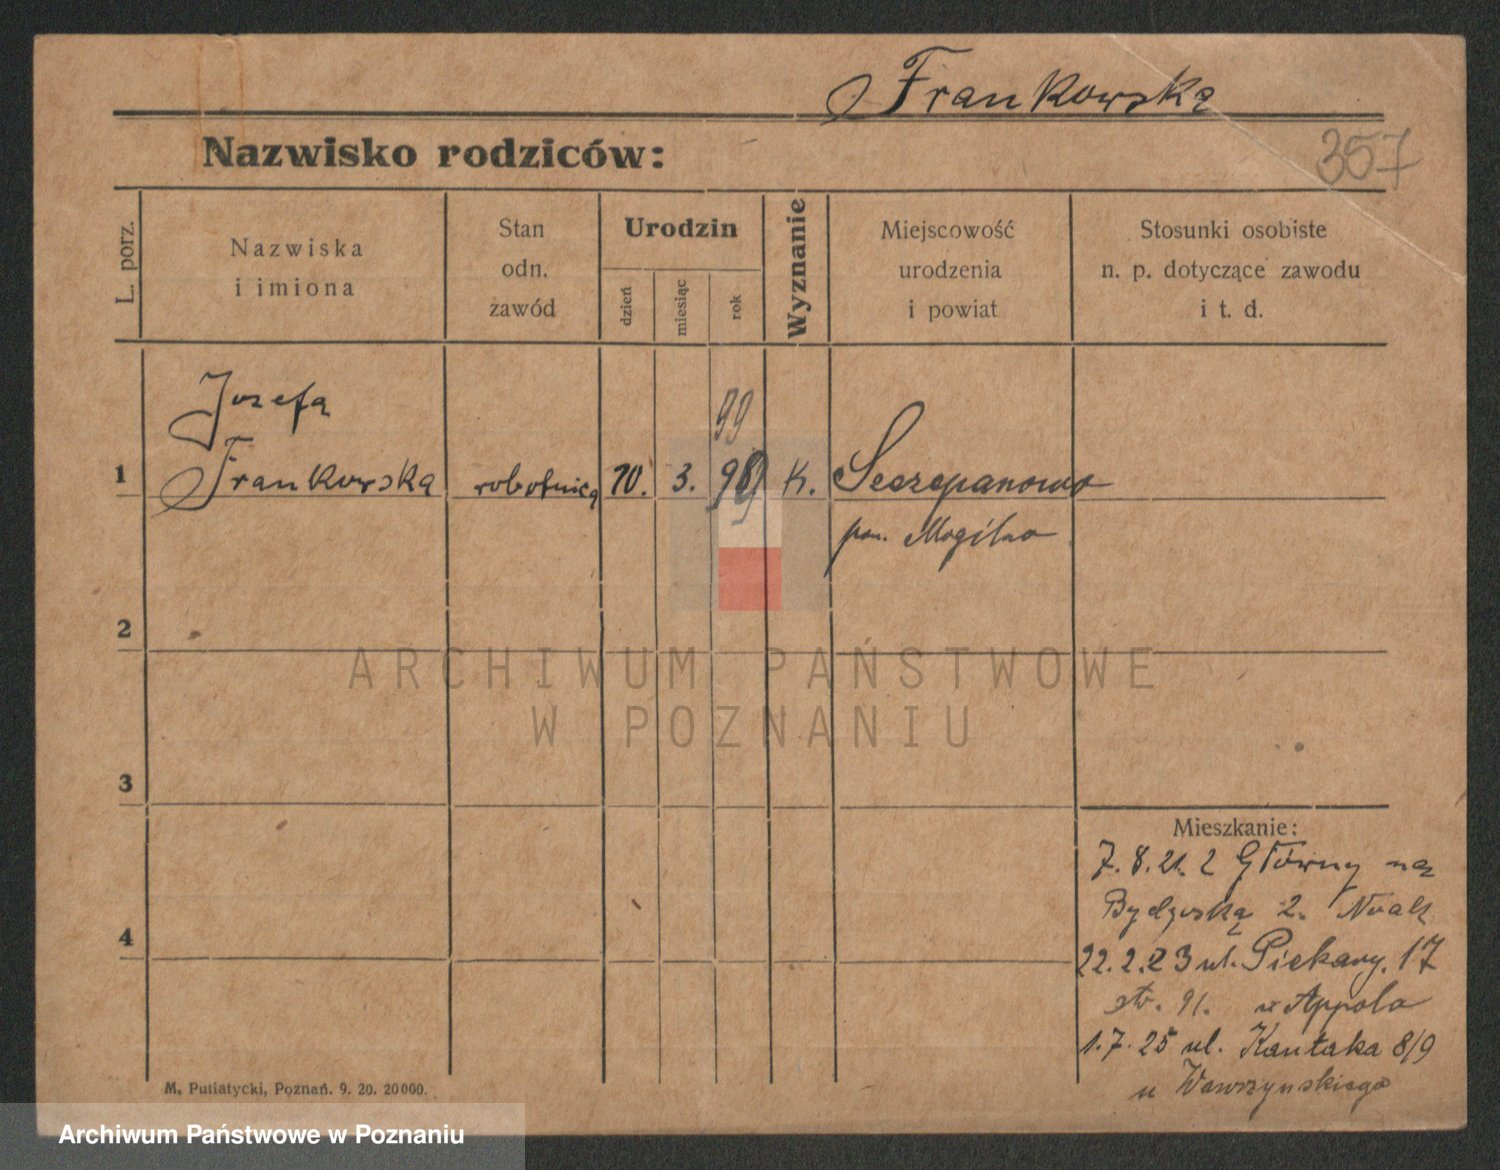 Frankowska
357
Nazwisko rodziców:
L. porz.
Nazwiska
i imiona
Stan
odn.
zawód
Urodzin
dzień
miesiąc
rok
Wyznanie
Miejscowość
urodzenia
i powiat
Stosunki osobiste
n. p. dotyczące zawodu
i t. d.
Jozefa
99
1 Frankowska robotnica 10. 3. 98 K. Szczepanowo
99
pow. Mogilno
2
ARCHIWUM PAŃSTWOWE
W POZNANIU
3
Mieszkanie:
7. 8. 21. z Główny na
Bydgoską 2.
4
22. 2. 23 ul. Piekary. 17
u Appola
1. 7. 25 ul. Kantaka 8/9
u Wawrzynskiego
M. Putiatycki, Poznań. 9. 20. 20000.
Archiwum Państwowe w Poznaniu